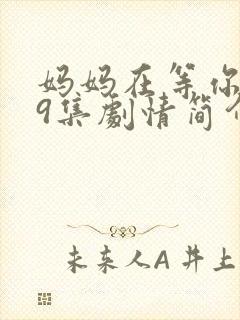 妈妈在等你
9集劇情简
未来人A 井上